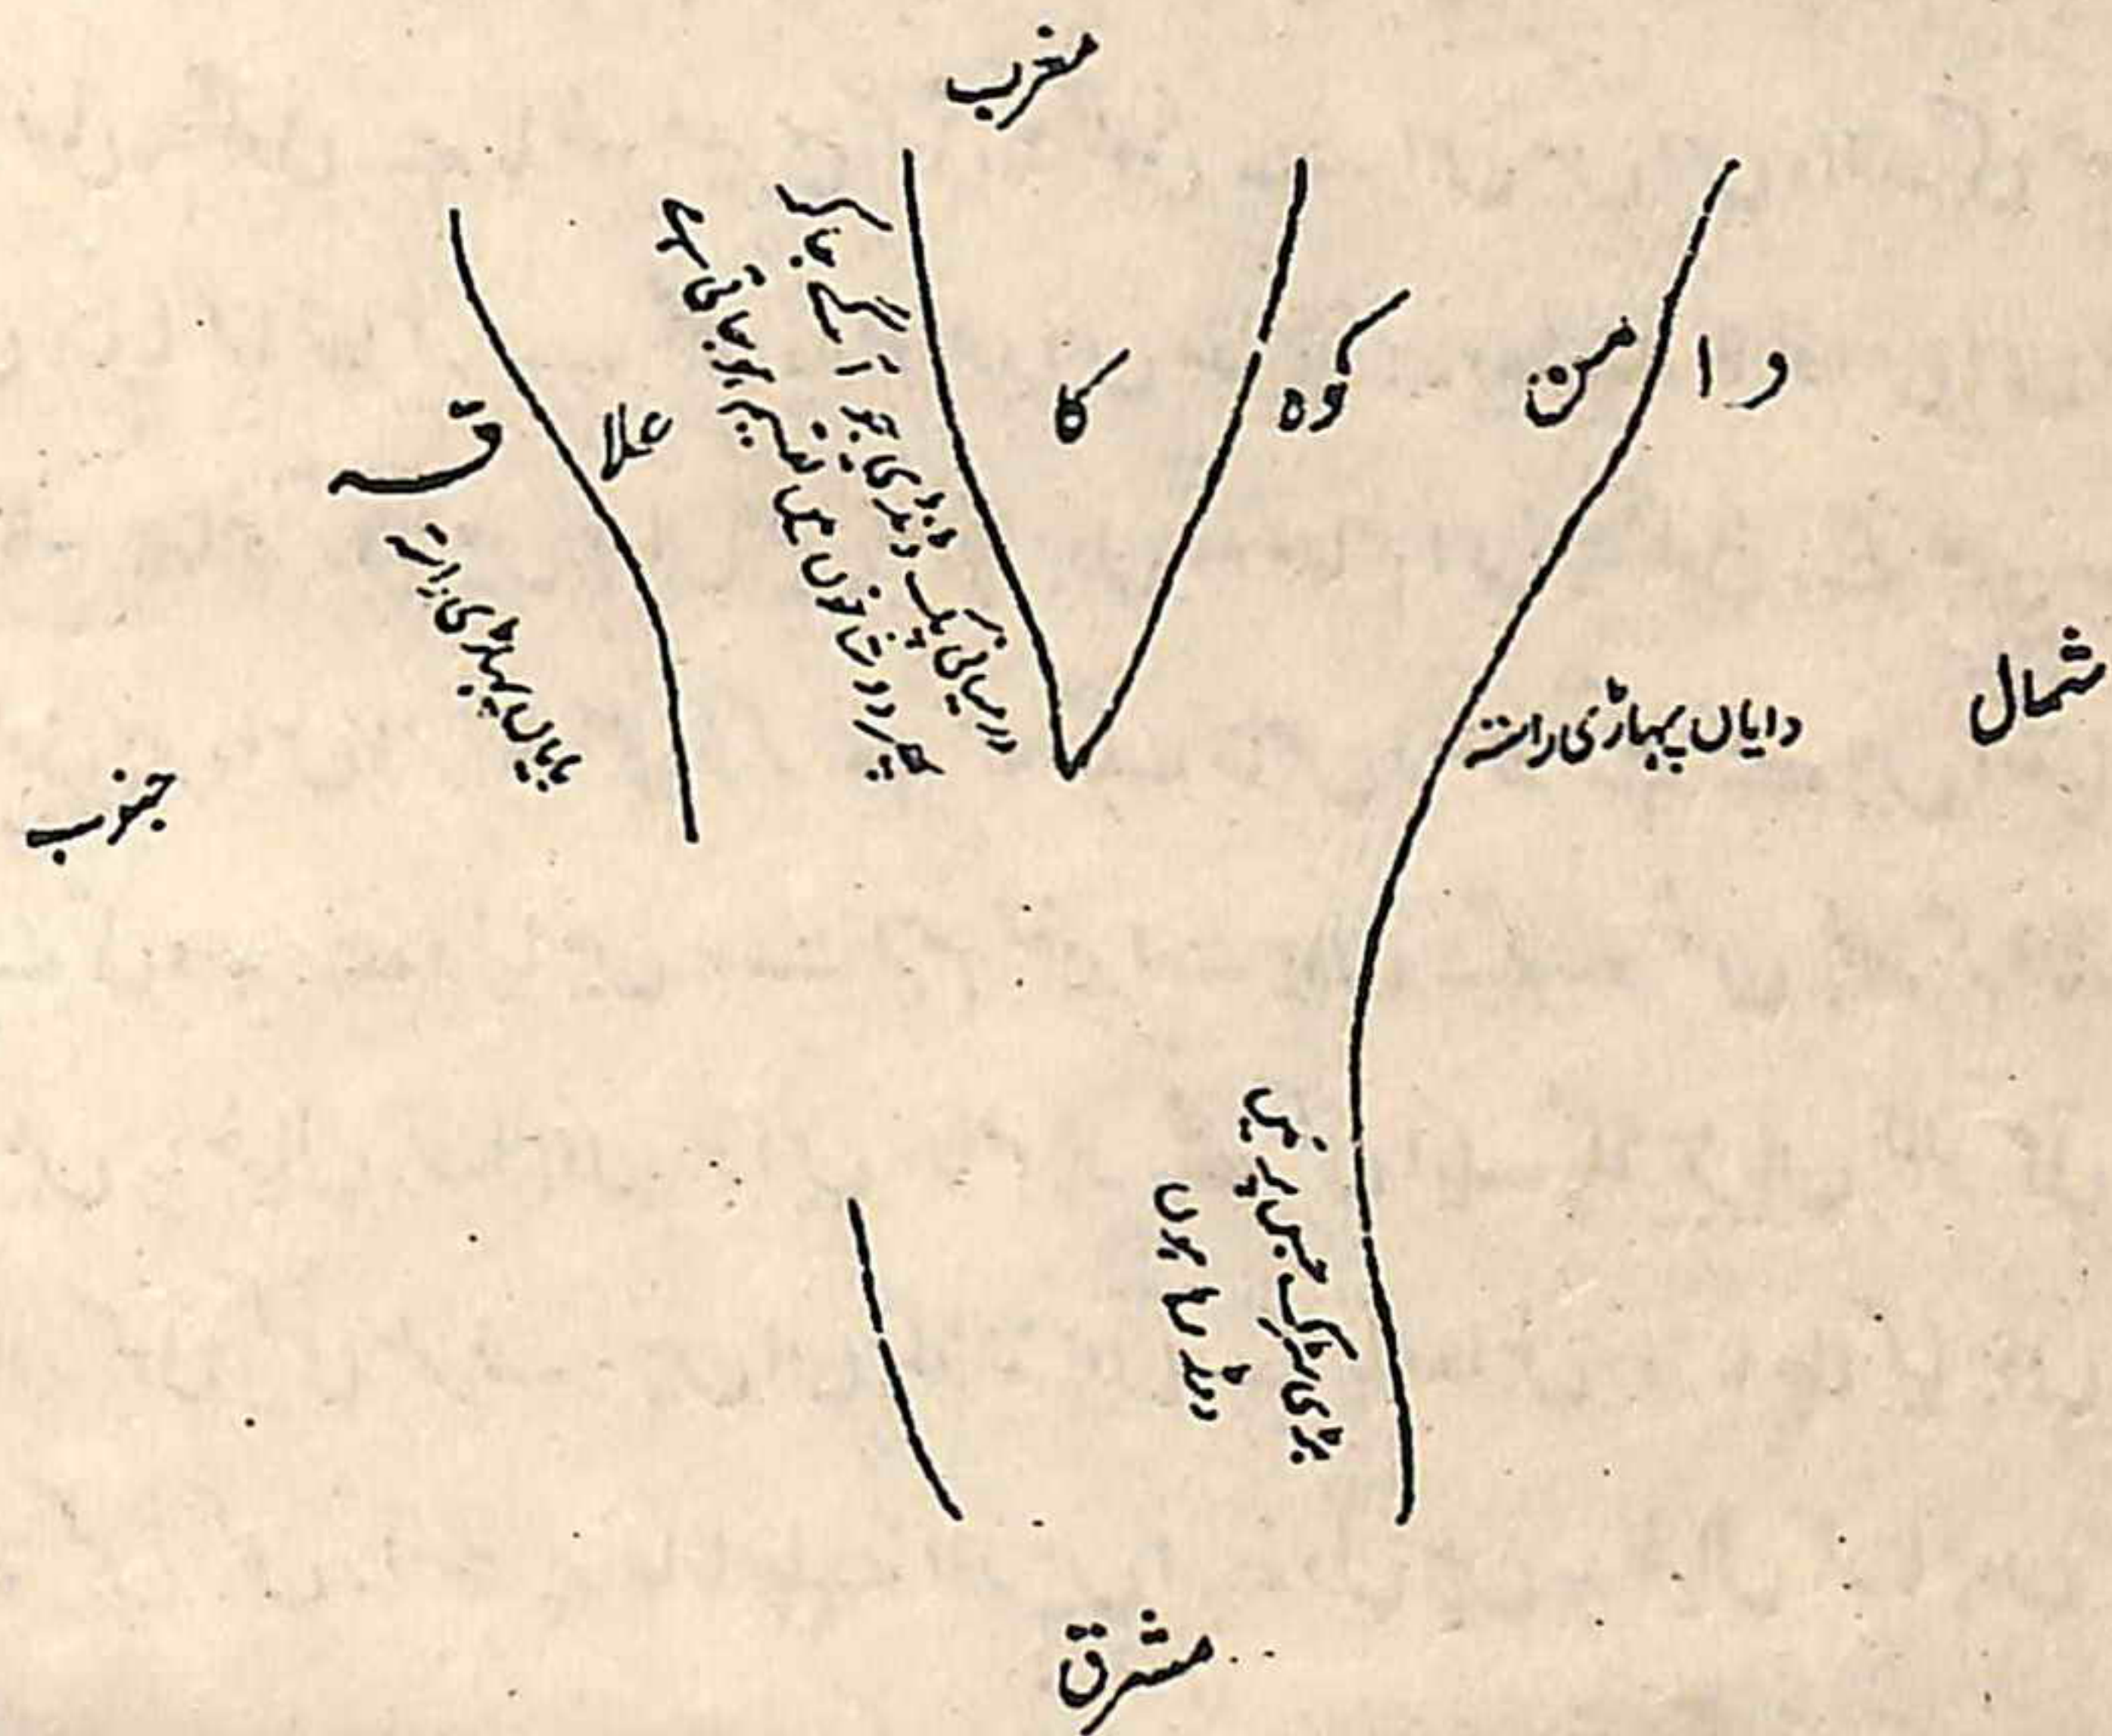 مغرب
دامن کوہ کا علاقہ
درمیانی پگ ڈنڈی جو آگے جا کر
پھر دو شاخوں میں تقسیم ہو جاتی ہے
بایاں پہاڑی راستہ
دایاں پہاڑی راستہ
شمال
جنوب
بڑی سڑک جس پر میں
دوڑ رہا ہوں
مشرق